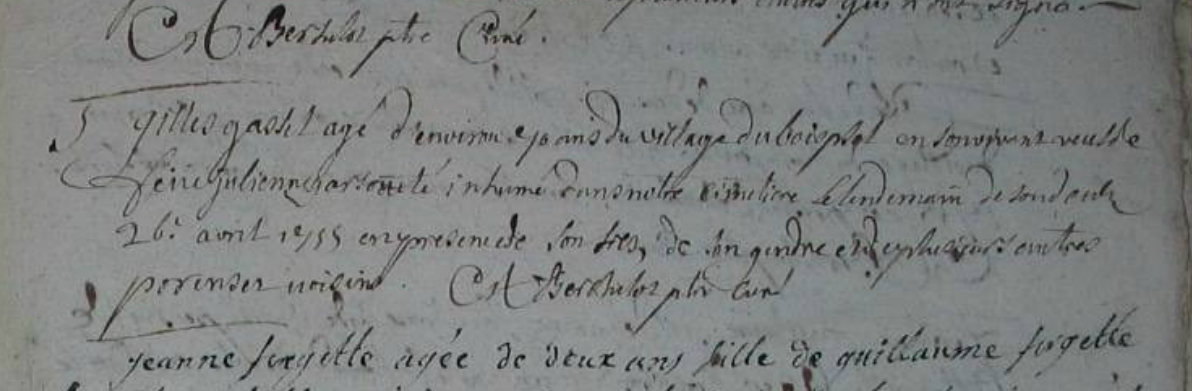 qui n'ont signé
Berthelot ptre Curé.
5 gilles gasset agé d'environ 70 ans du village du boisplot en son vivant veuf de
feüe julienne a été inhumé dans notre cimetiere le lendemain de son deub
26e avril 1755 en presence de son de son gendre et de plusieurs autres
parens et voisins. Berthelot ptre Curé
jeanne forgette agée de deux ans fille de guillaume forgette